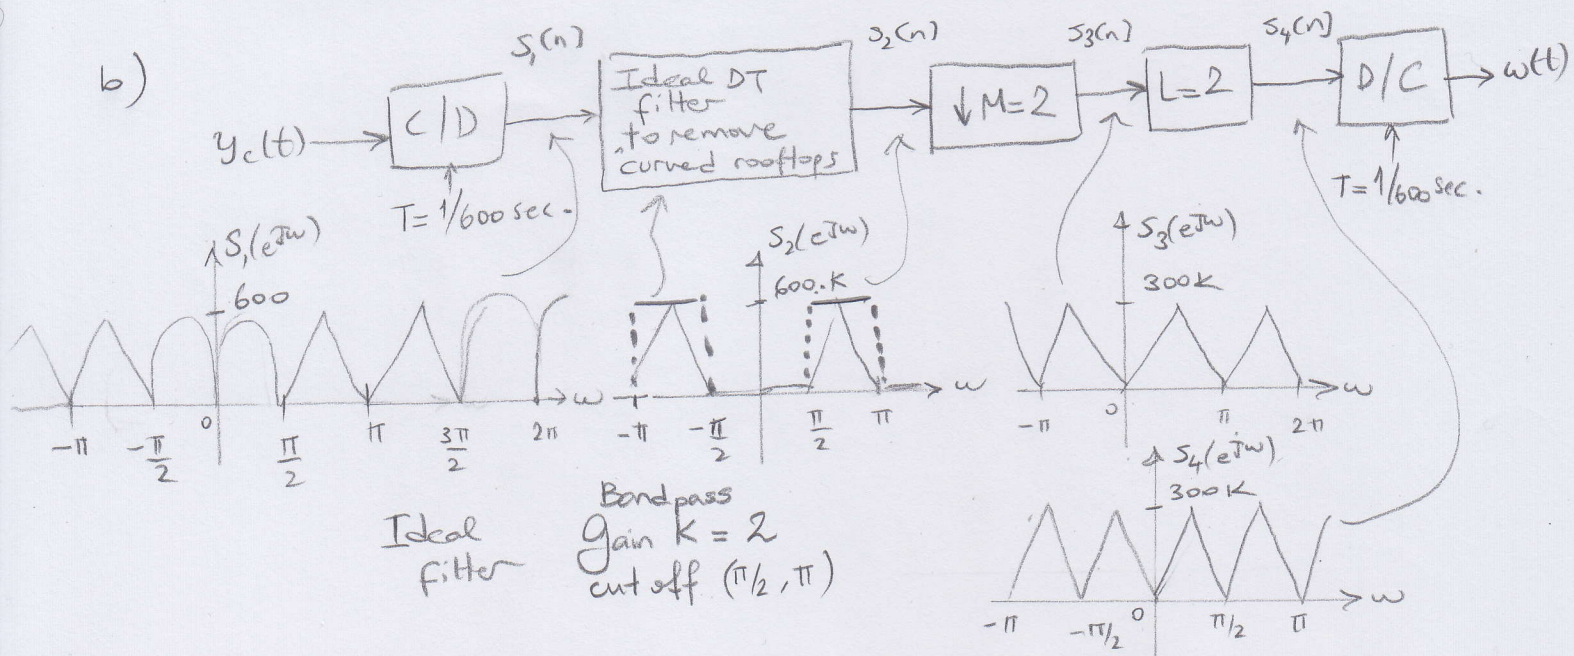 b)
y_c(t)
C/D
T=1/600 sec.
S₁(n)
Ideal DT
filter
to remove
curved rooftops
S₂(n)
↓M=2
S₃(n)
L=2
S₄(n)
D/C
T=1/600 sec.
ω(t)
S₁(e^Jω)
600
-π
-π/2
0
π/2
π
3π/2
2π
ω
S₂(e^Jω)
600.K
-π
-π/2
π/2
π
ω
S₃(e^Jω)
300K
-π
0
π
2π
ω
S₄(e^Jω)
300K
-π
-π/2
0
π/2
π
ω
Ideal
filter
Bandpass
gain K=2
cut off (π/2, π)